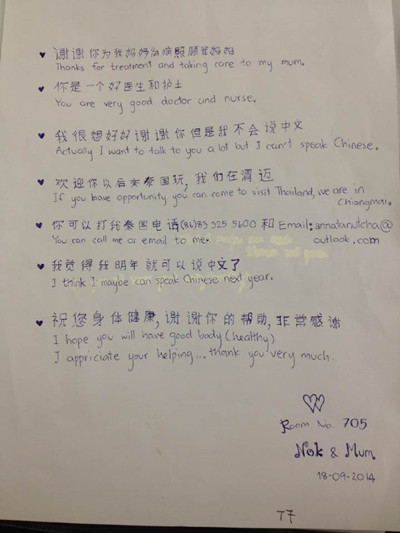 谢谢你为我妈妈治病照顾我妈妈
Thanks for treatment and taking care to my mum.
你是一个好医生和护士
You are very good doctor and nurse.
我很想好好谢谢你但是我不会说中文
Actually I want to talk to you a lot but I can't speak Chinese.
欢迎你以后来泰国玩, 我们在清迈
If you have opportunity you can come to visit Thailand, we are in
Chiangmai.
你可以打我泰国电话(86)83 325 5600 和 Email: annatanutcha@
You can call me or email to me. outlook.com
我觉得我明年就可以说中文了
I think I maybe can speak Chinese next year.
祝您身体健康, 谢谢你的帮助, 非常感谢
I hope you will have good body (healthy)
I appriciate your helping... thank you very much.
Room No. 705
Nok & Mum
18-09-2014